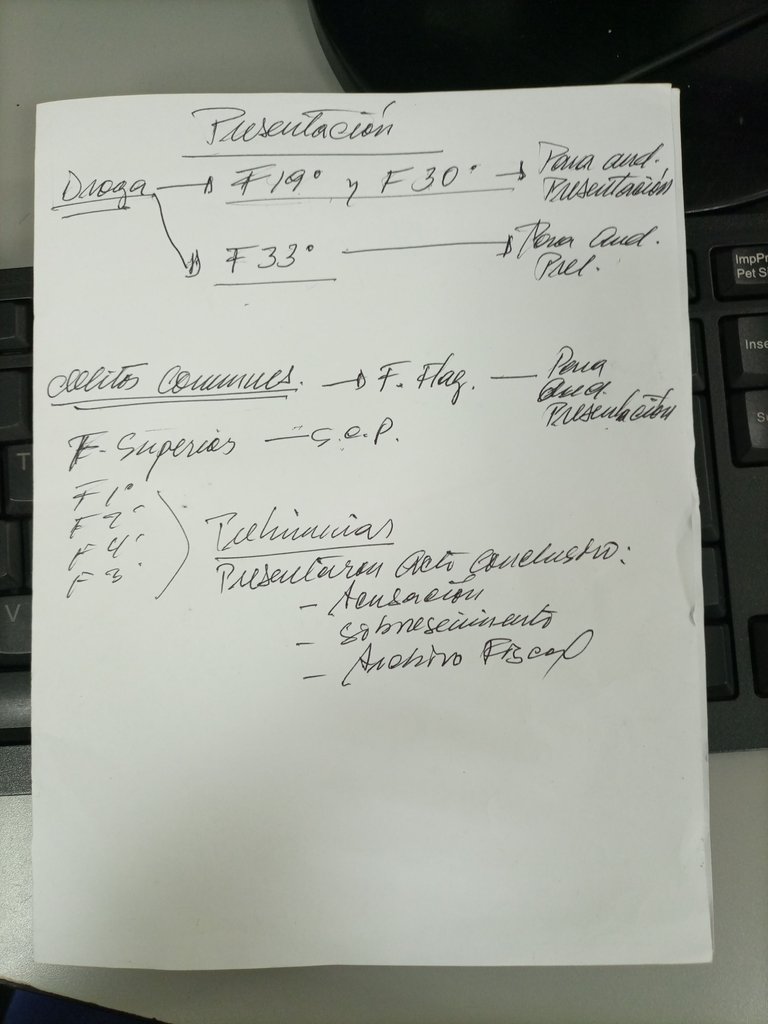 Presentación
Droga → F 19° y F 30° → Para aud. Presentación
→ F 33° → Para Aud. Prel.
delitos comunes. → F. Flag. — Para Aud. Presentación
F. Superior —
F 1°
F 2°
F 4°
F 3°
Preliminar
Presentaron Acto Conclusivo:
- Acusación
- Sobreseimiento
- Archivo Fiscal
ImpPr
Pet Si
Inse
T
V